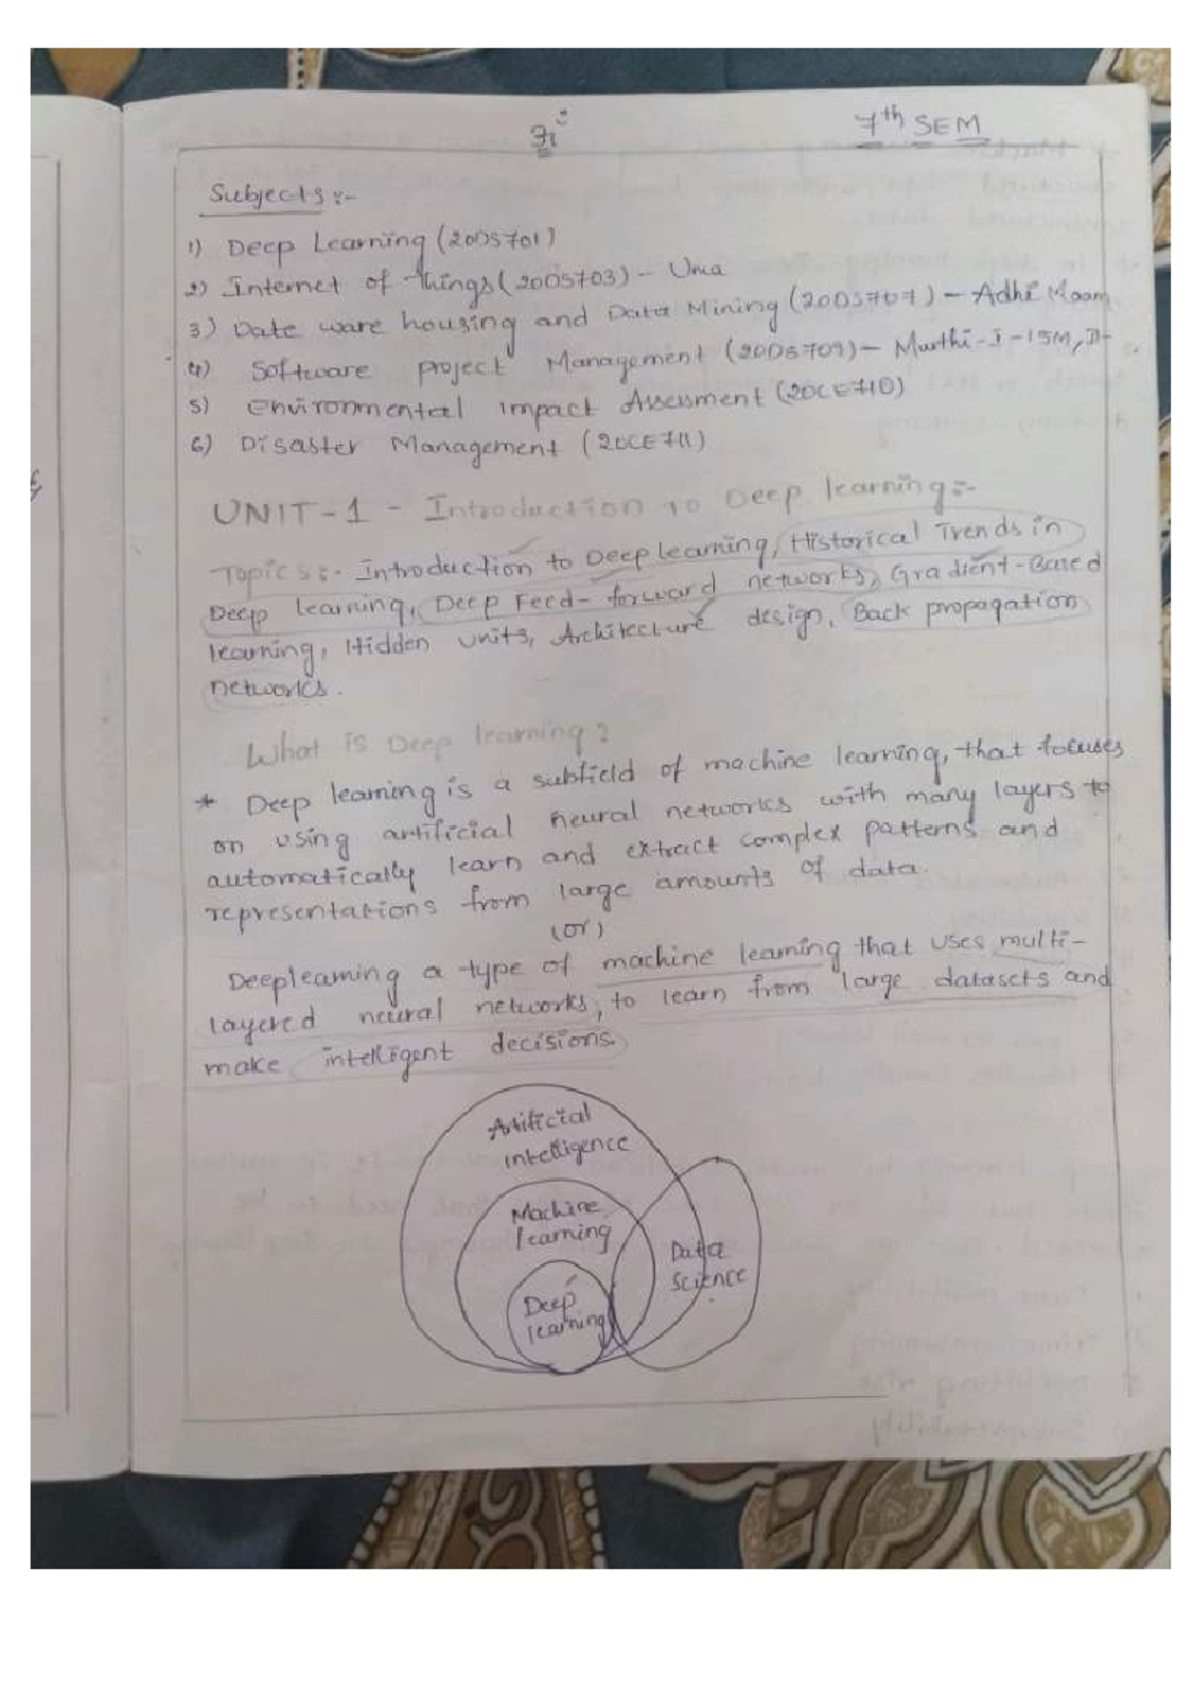 7th SEM
Subjects :-
1) Deep Learning (20DS701)
2) Internet of things (20DS703) - Uma
3) Date ware housing and Data Mining (20DS707) - Adhi Maam
4) Software project Management (20DS709) - Murthi - I - 15M, II-
5) Environmental impact Assessment (20CE710)
6) Disaster Management (20CE711)
UNIT-1 - Introduction to Deep learning:-
Topics:- Introduction to Deep learning, Historical Trends in
Deep learning, Deep Feed-forward networks, Gradient-Based
learning, Hidden units, Architecture design, Back propagation
networks.
What is Deep learning?
* Deep learning is a subfield of machine learning, that focuses
on using artificial neural networks with many layers to
automatically learn and extract complex patterns and
representations from large amounts of data.
(or)
Deeplearning a type of machine learning that uses multi-
layered neural networks, to learn from large datasets and
make intelligent decisions.
Artificial
intelligence
Machine
learning
Data
Science
Deep
learning